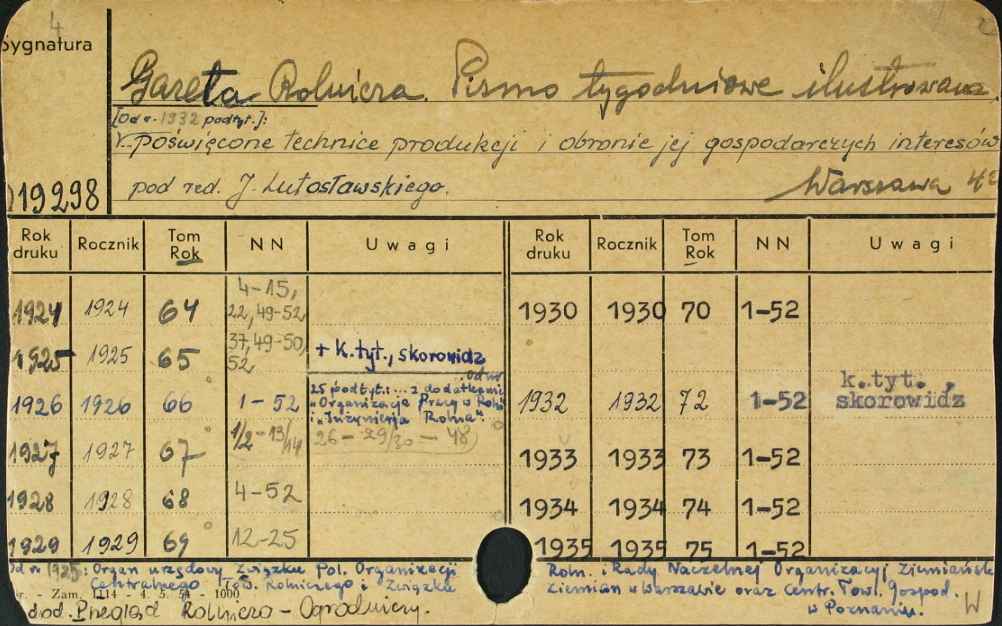 4
Sygnatura
Gazeta Rolnicza. Pismo tygodniowe ilustrowane.
[Od r. 1932 podtyt.]:
poświęcone technice produkcji i obronie jej gospodarczych interesów
pod red. J. Lutosławskiego. Warszawa 4°
019298
Rok druku Rocznik Tom Rok NN Uwagi Rok druku Rocznik Tom Rok NN Uwagi
1924 1924 64 4-15, 22, 49-52 1930 1930 70 1-52
1925 1925 65 37, 49-50, 52 + k.tyt., skorowidz
1926 1926 66 1-52 1932 1932 72 1-52 k.tyt., skorowidz
od nr 25 podtyt.: ... z dodatkami
"Organizacja Pracy w Roln."
i "Inżynierja Rolna".
1927 1927 67 1/2-13/14 26-29/30-48) 1933 1933 73 1-52
1928 1928 68 4-52 1934 1934 74 1-52
1929 1929 69 12-25 1935 1935 75 1-52
Od nr 1925: Organ urzędowy Związku Pol. Organizacji Roln. i Rady Naczelnej Organizacyj Ziemiańsk.
Centralnego Tow. Rolniczego i Związku Ziemian w Warszawie oraz Centr. Tow. Gospod.
w Poznaniu.
Zam. 1114 - 4. 5. 54 - 1000
dod. Przegląd Rolniczo-Ogrodniczy. W